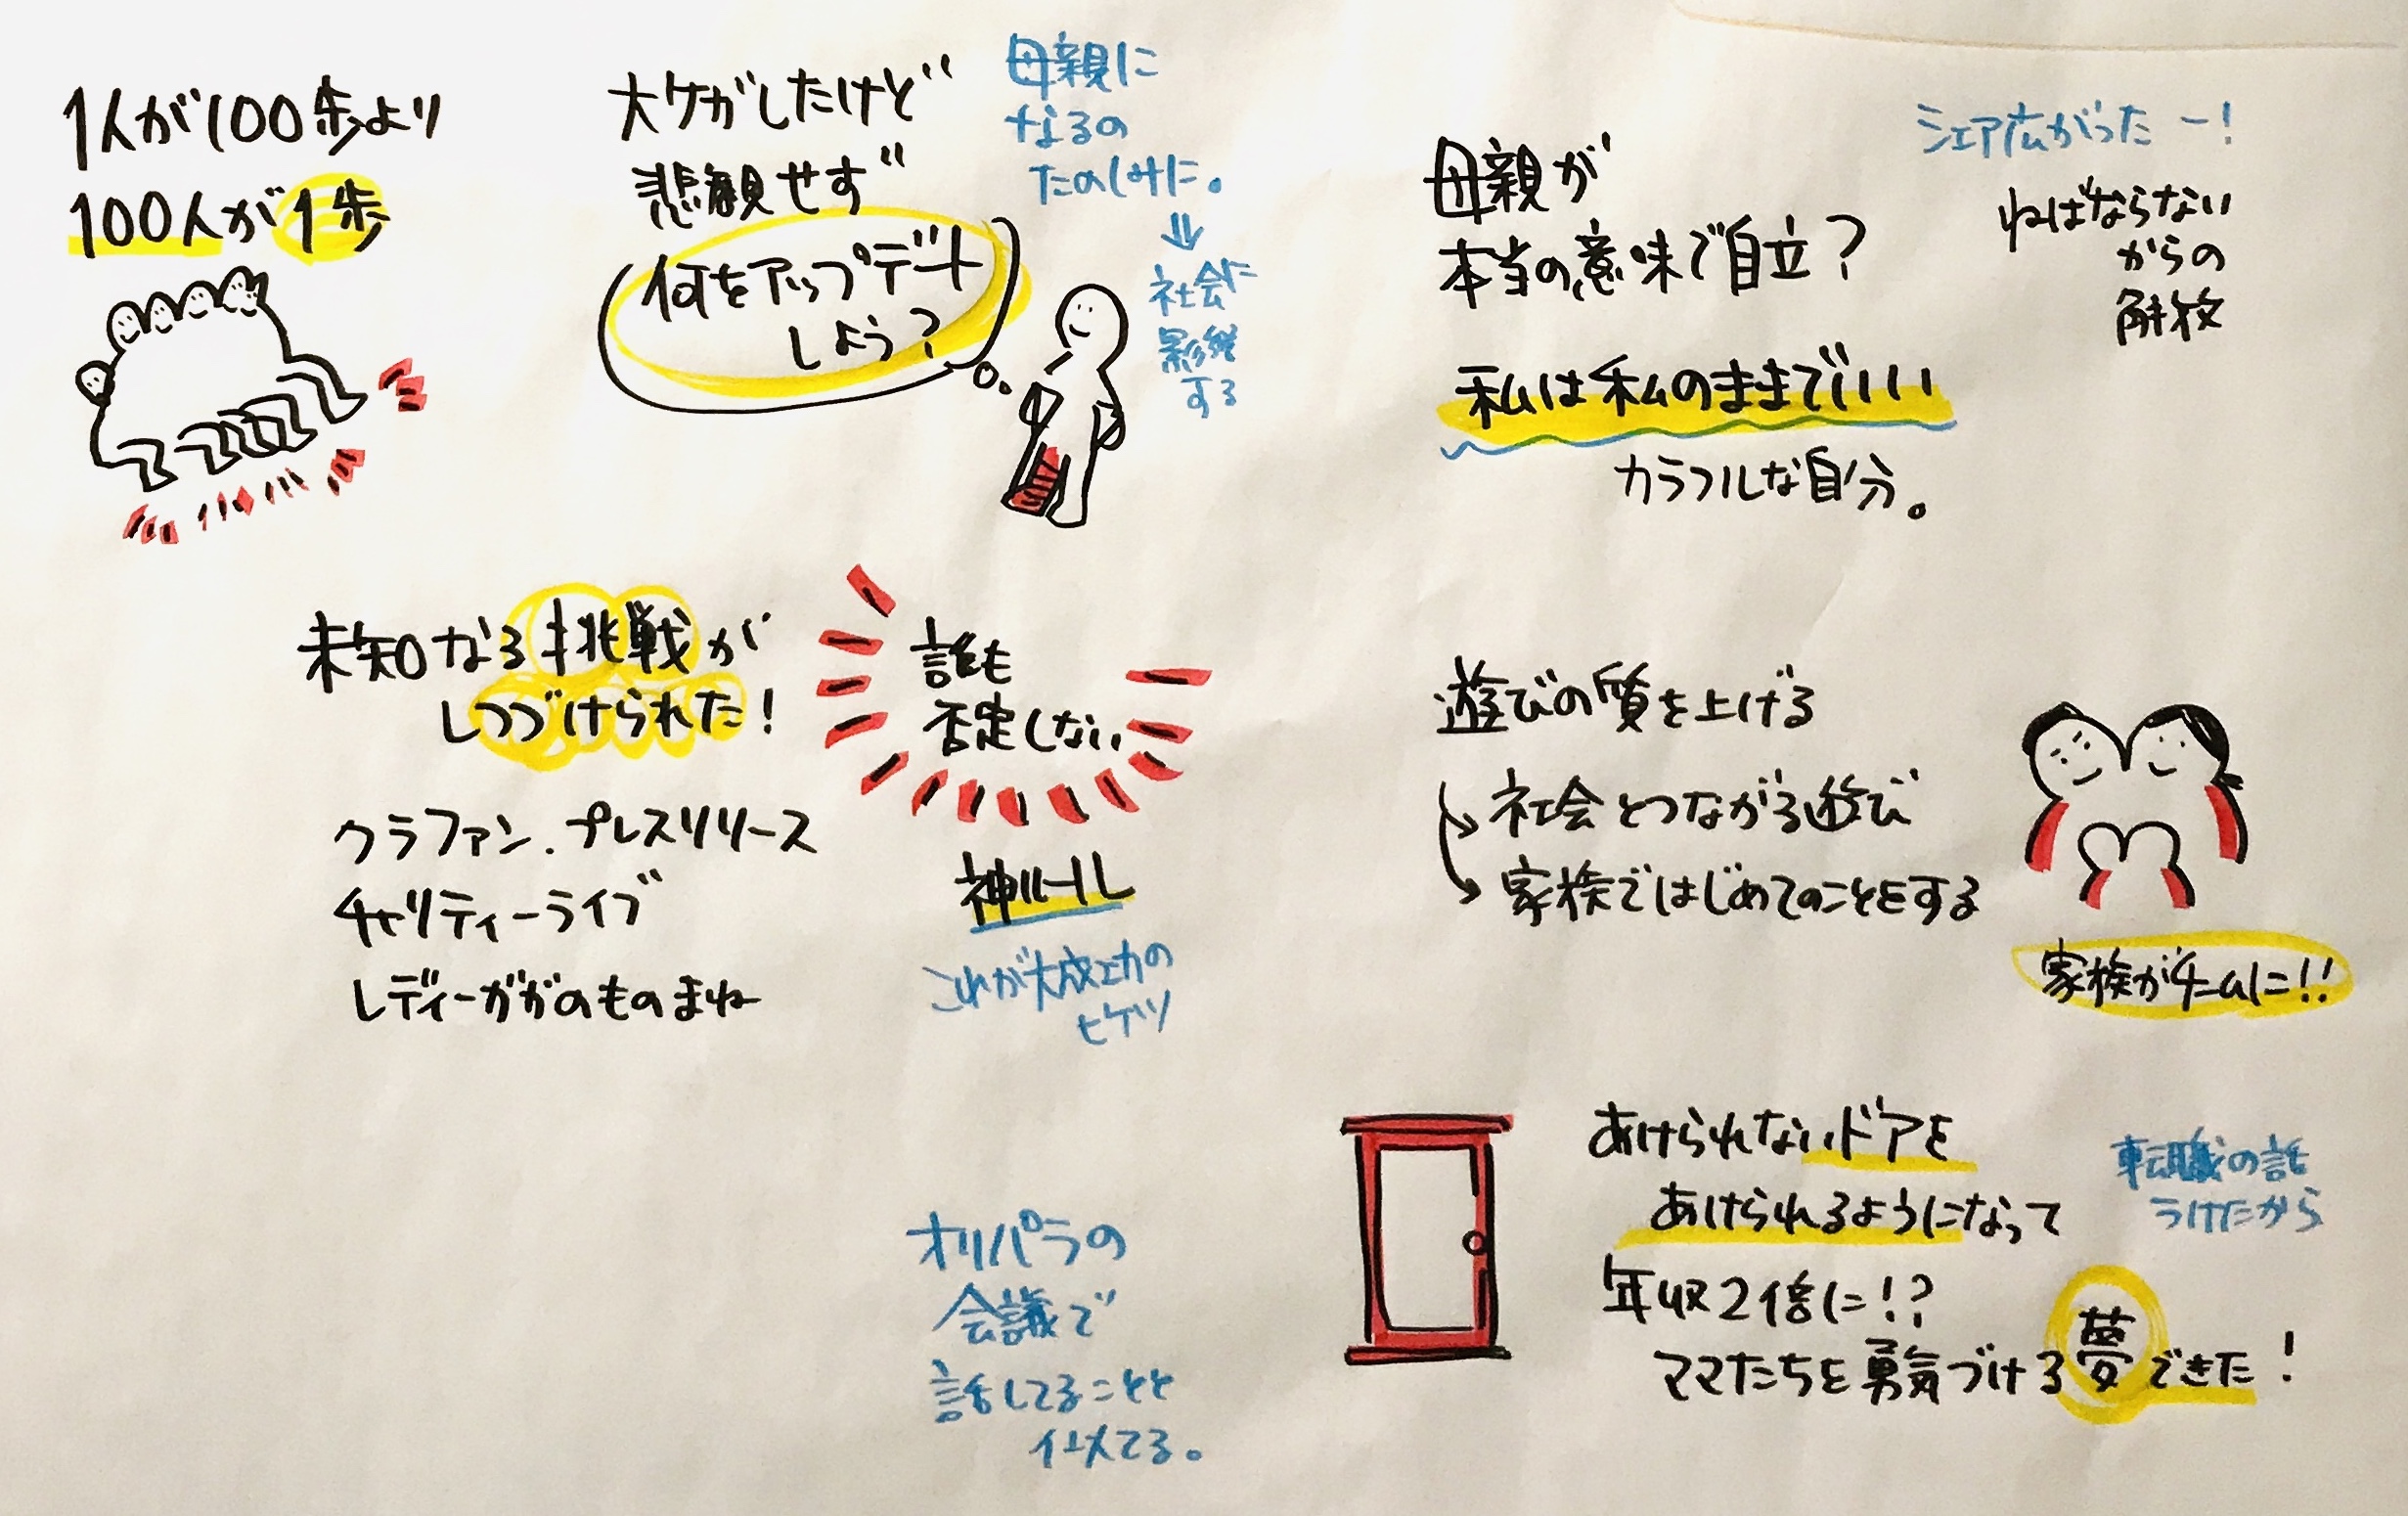 1人が100歩より
100人が1歩
大ケがしたけど
悲観せず
何をアップデート
しよう?
母親に
なるの
たのしみに。
⇓
社会に
影響
する
母親が
本当の意味で自立?
私は私のままでいい
カラフルな自分。
シェア広がったー!
ねばならない
からの
解放
未知なる挑戦が
しつづけられた!
クラファン.プレスリリース
チャリティーライブ
レディーガガのものまね
誰も
否定しない
神ルール
これが大成功の
ヒケツ
遊びの質を上げる
社会とつながる遊び
家族ではじめてのことをする
家族がチームに!!
オリパラの
会議で
話してることと
似てる。
あけられないドアを
あけられるようになって
年収2倍に!?
ママたちを勇気づける夢できた!
転職の話
うけたから